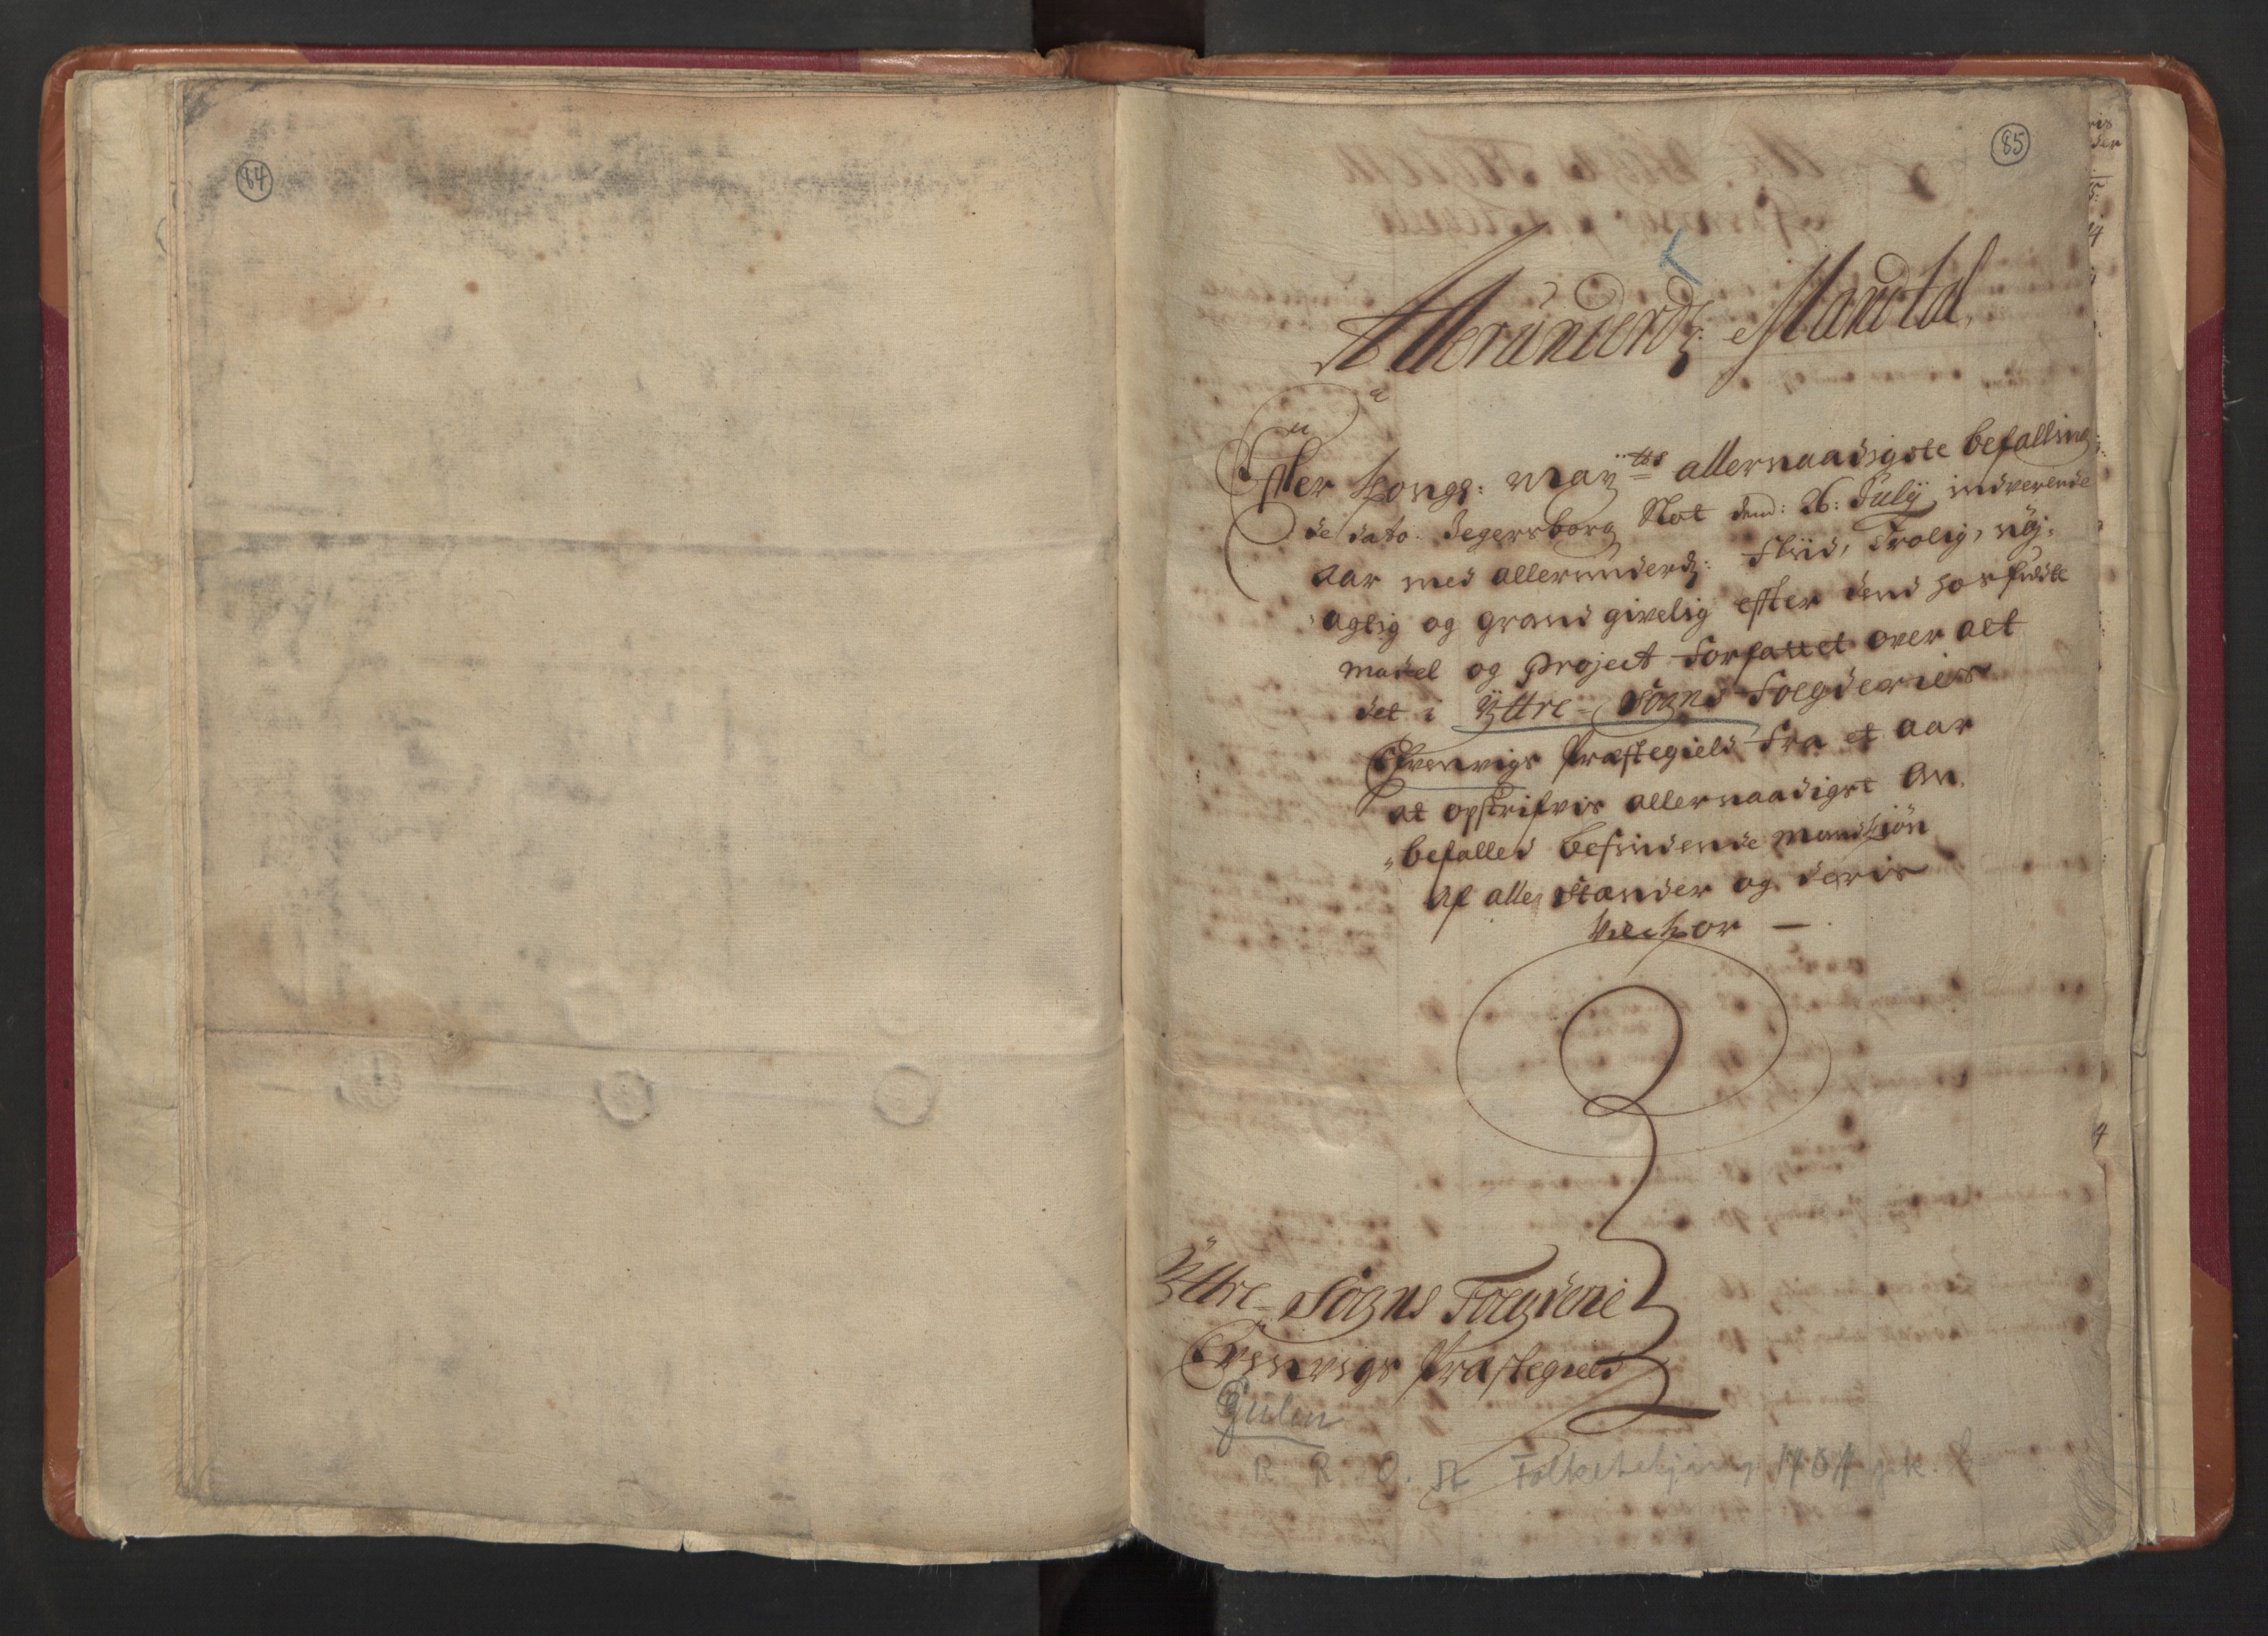 84
85
Allerunderd: Mandtal,
Effter Kongl: Mayttes allernaadigste befalling
de dato. Jegersborg Slot dend: 26: July indverende
aar med allerunderd: Fliid, Trolig, nøj-
agtig og grandgivelig effter dend hosfuldte
model og Project forfattet over alt
det i Yttre-Sogns Foegderies
Evenvigs Præstegield fra et aar
at opskrifvis allernaadigst An-
befalled befindende Mandkiøn
Af alle Stænder og deris
Yttre-Sogns Foegderie
Evenvigs Præstegield
Gulen
R R Q. St Folketeljing 1701 pk. 8